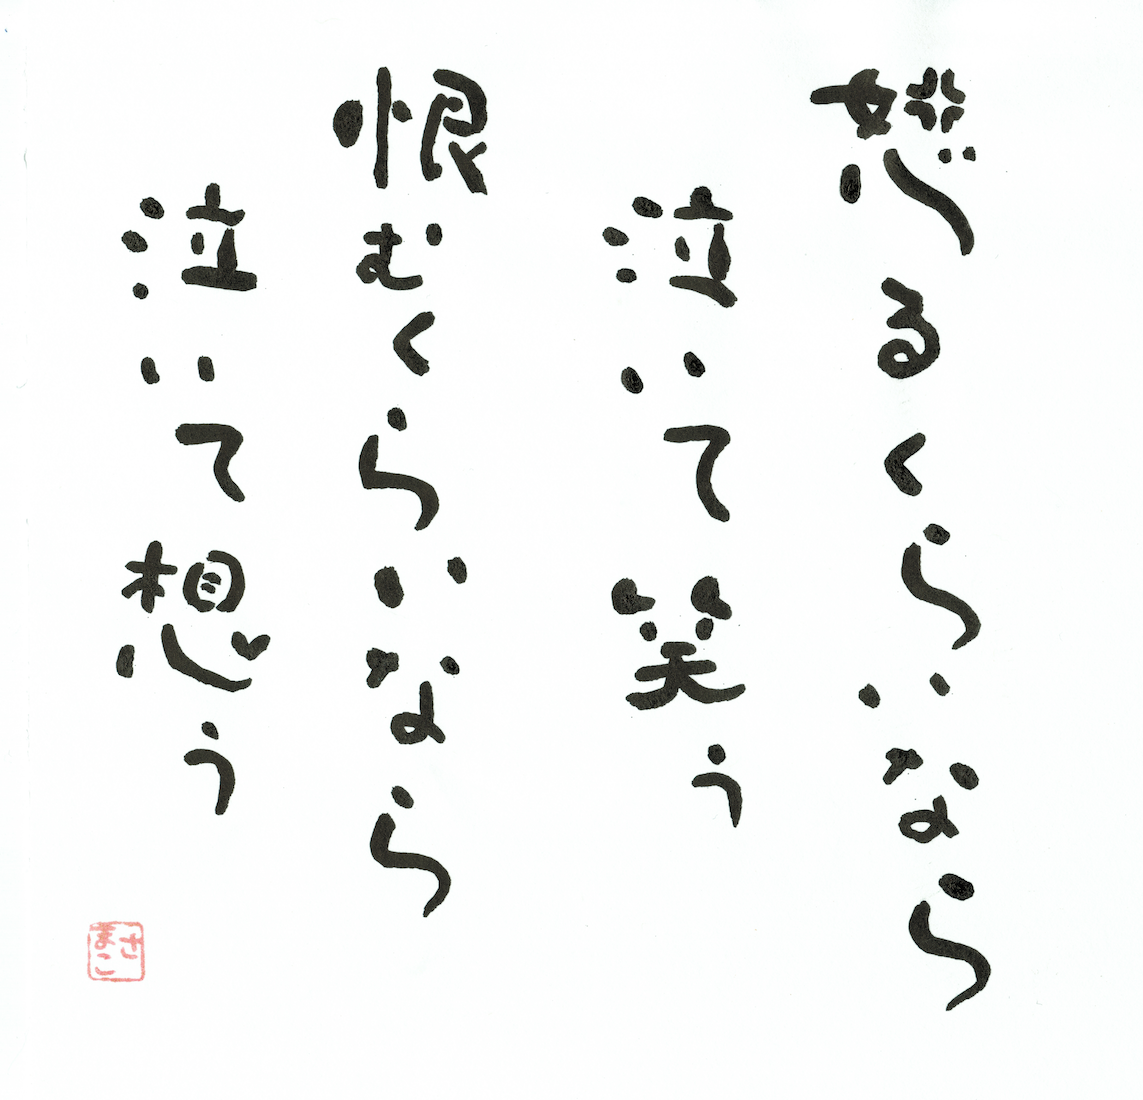 怒るくらいなら
泣いて笑う
恨むくらいなら
泣いて想う
さ
まこ